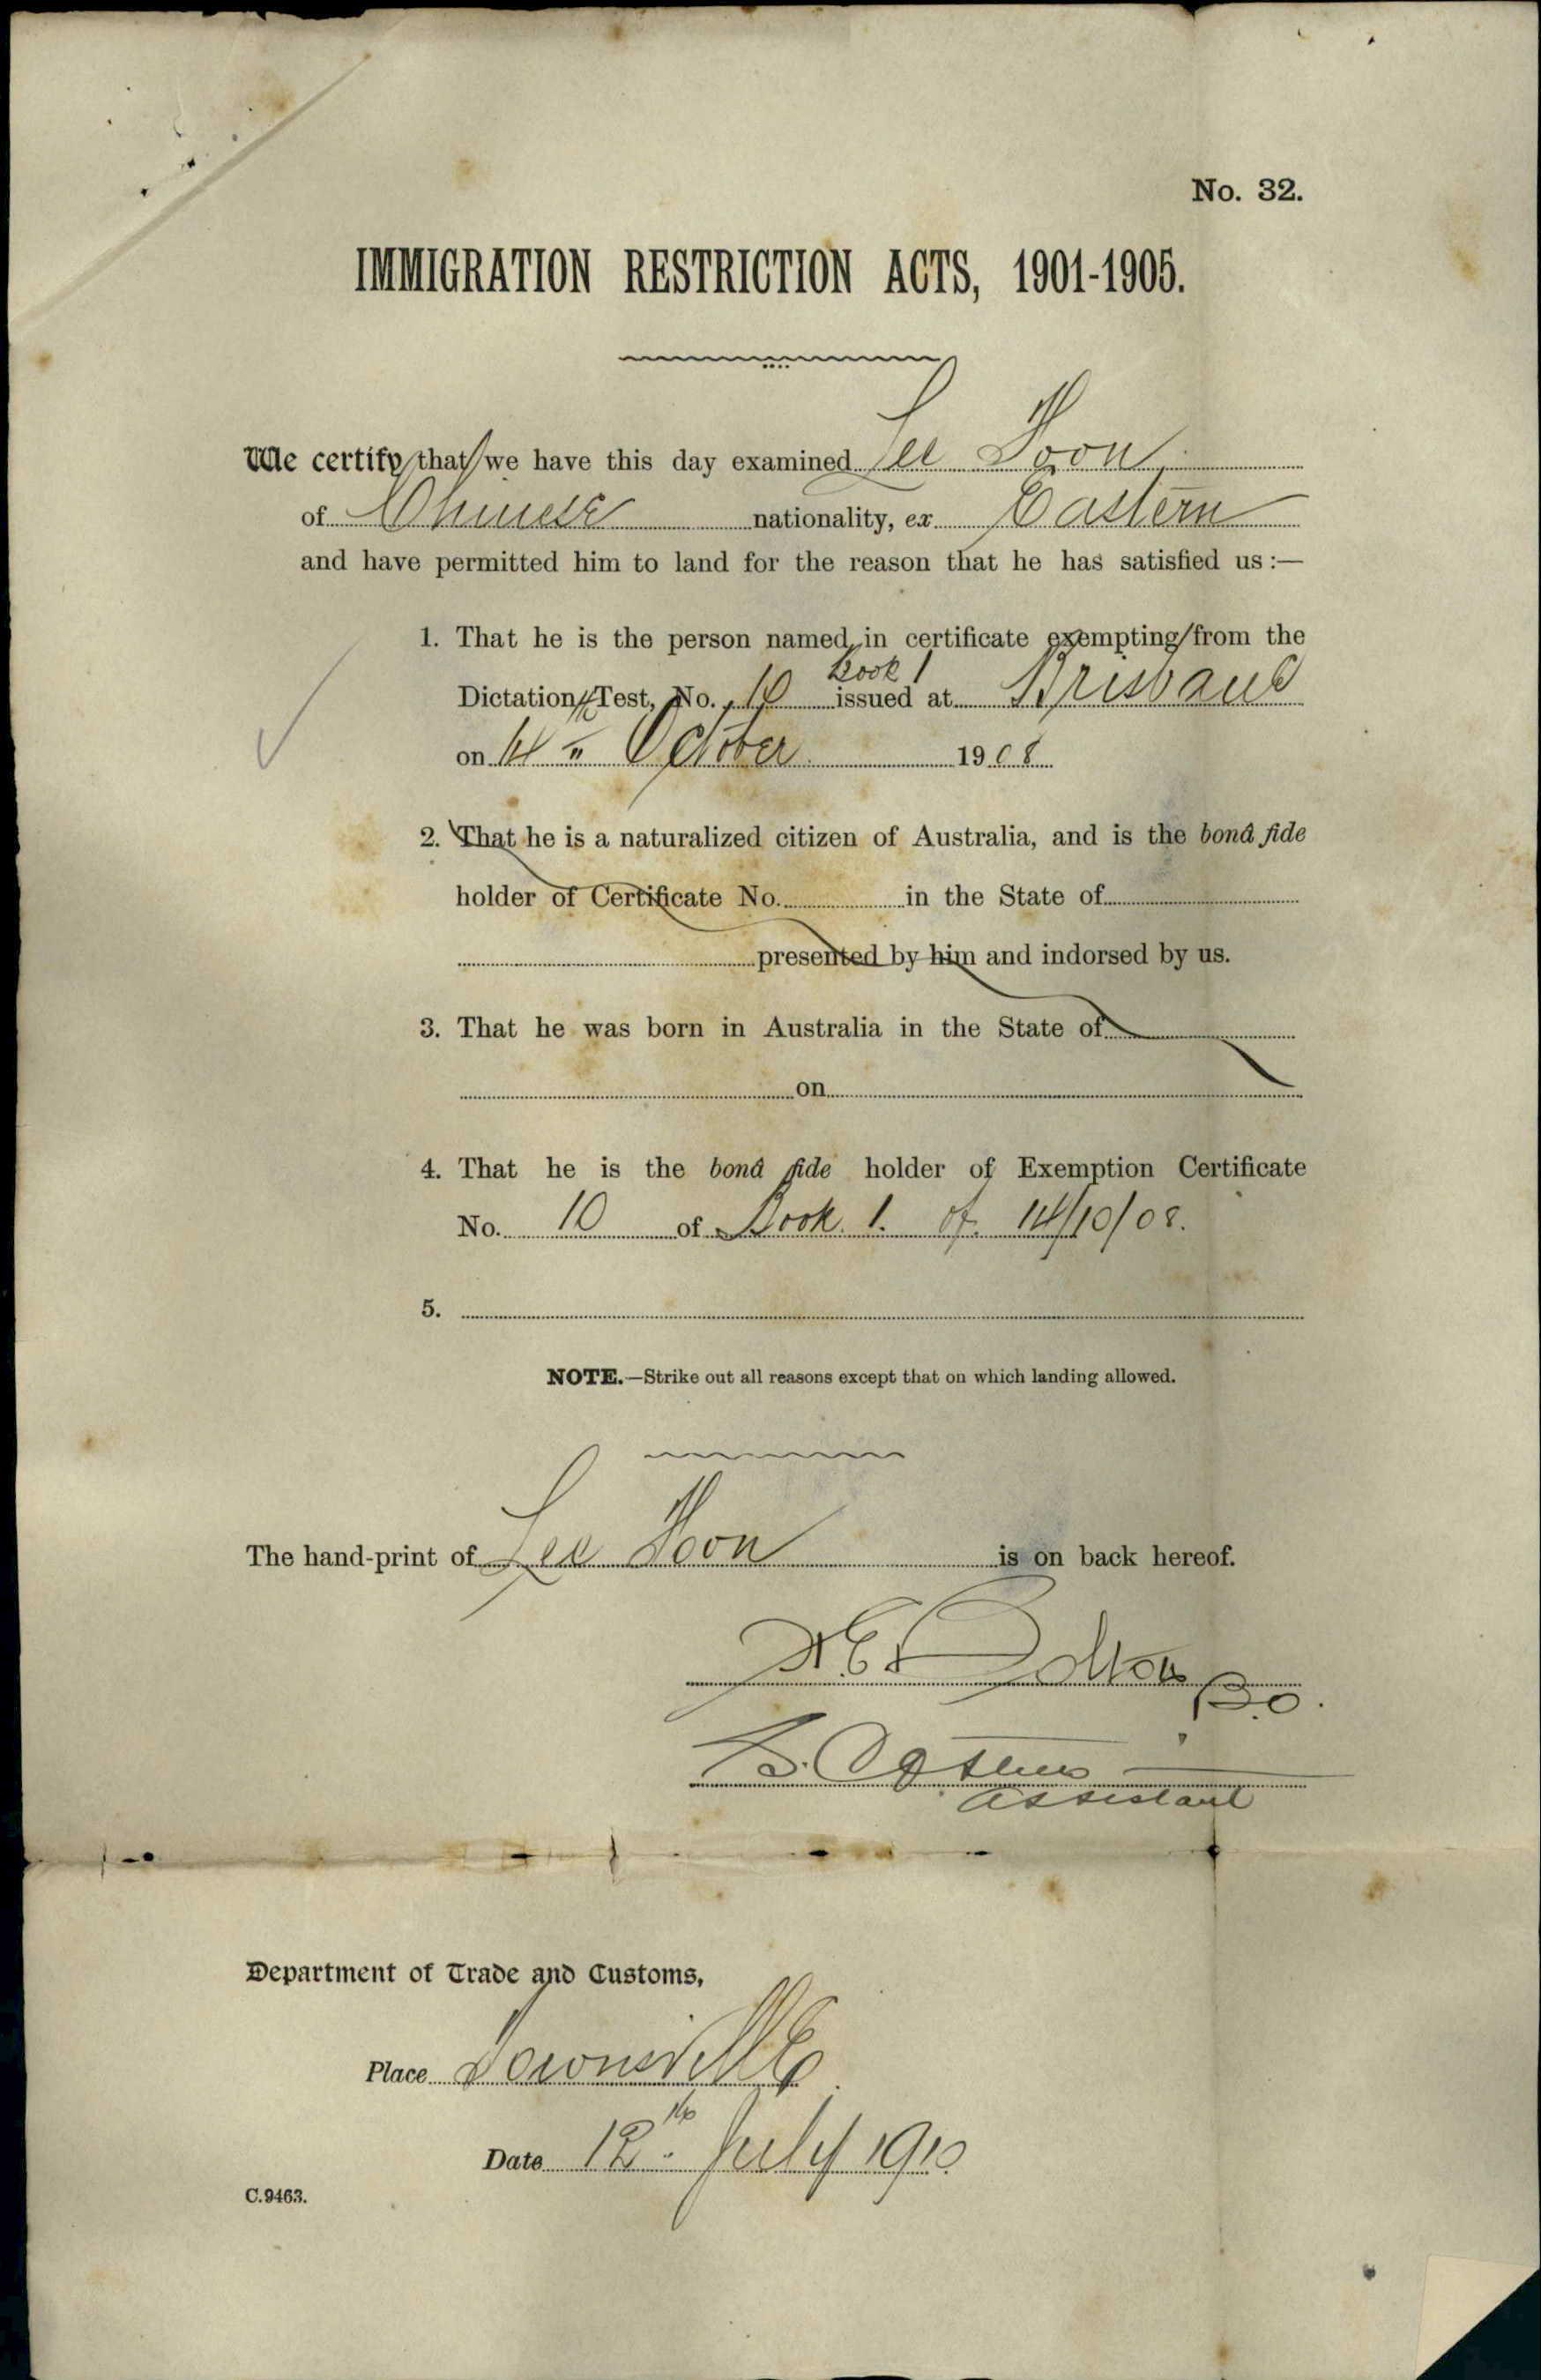 No. 32.
IMMIGRATION RESTRICTION ACTS, 1901-1905.
We certify that we have this day examined Lee Hoon
of Chinese nationality, ex Eastern
and have permitted him to land for the reason that he has satisfied us :—
1. That he is the person named in certificate exempting from the
Book 1
Dictation Test, No. 10 issued at Brisbane
on 14th October 1908
2. That he is a naturalized citizen of Australia, and is the bonâ fide
holder of Certificate No. in the State of
presented by him and indorsed by us.
3. That he was born in Australia in the State of
on
4. That he is the bonâ fide holder of Exemption Certificate
No. 10 of Book 1. of 14/10/08.
5.
NOTE.—Strike out all reasons except that on which landing allowed.
The hand-print of Lee Hoon is on back hereof.
B.O.
Assistant
Department of Trade and Customs,
Place Townsville
Date 12th July 1910
C.9463.